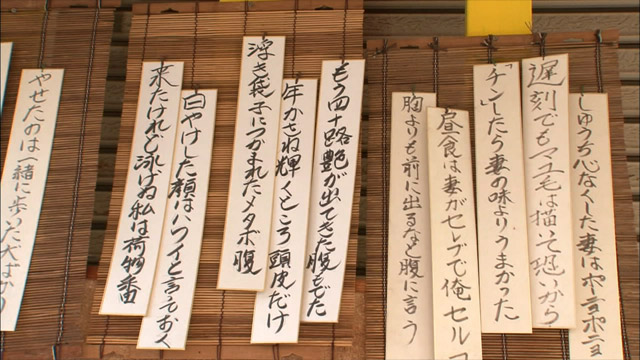 しゅうち心なくした妻はポニョポニョ
遅刻でもマユ毛は描いて恐いから
「チン」したら妻の味よりうまかった
昼食は妻がセレブで俺セルフ
胸よりも前に出るなと腹に言う
もう四十路艶が出てきた腹もでた
年かさね輝くところ頭皮だけ
浮き袋子につかまれたメタボ腹
白やけした顔はハワイと言っておく
来たけれど泳げぬ私は荷物番
やせたのは一緒に歩いた犬ばかり